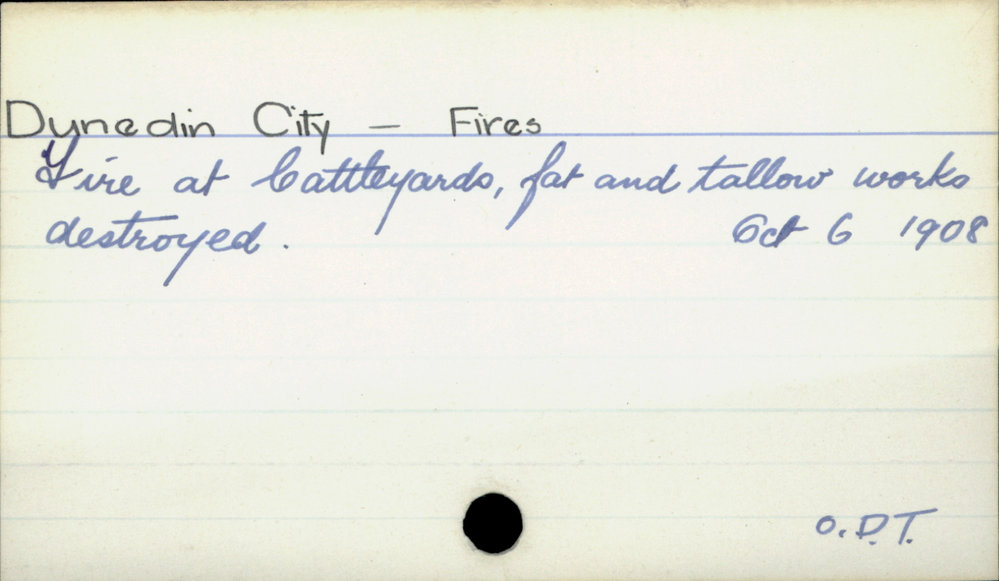 Dunedin City — Fires
Fire at Cattleyards, fat and tallow works
destroyed. Oct 6 1908
O.D.T.